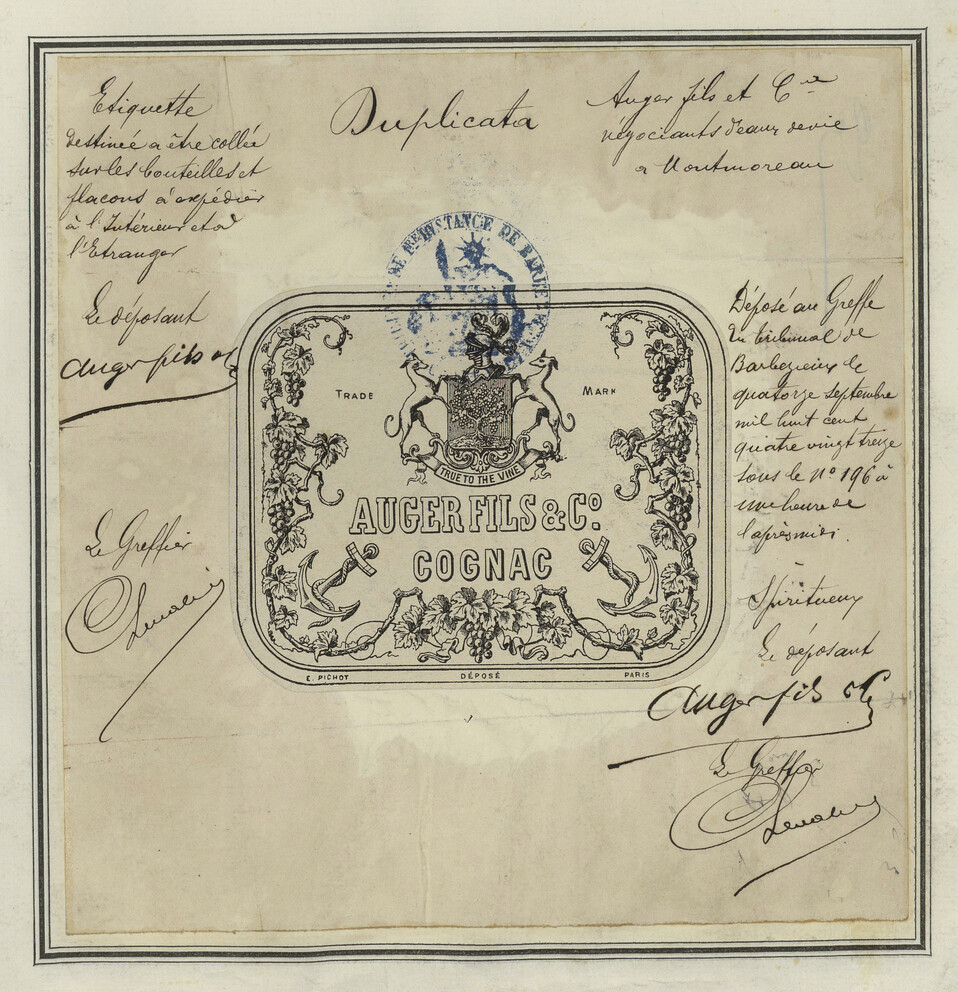 Duplicata
Etiquette
destinée a être collée
sur les bouteilles et
flacons à expédier
à l'Intérieur et à
l'Etranger
Le déposant
Auger fils et Cie
Le Greffier
Auger fils et Cie
négociants d'eaux de vie
a Montmoreau
TRIBUNAL DE 1ERE INSTANCE DE BARBEZIEUX
TRADE MARK
TRUE TO THE VINE
AUGER FILS & Co.
COGNAC
E. PICHOT DÉPOSÉ PARIS
Déposé au Greffe
du tribunal de
Barbezieux le
quatorze septembre
mil huit cent
quatre vingt treize
sous le No 196 à
une heure de
l'après midi.
Spiritueux
Le déposant
Auger fils et Cie
Le Greffier